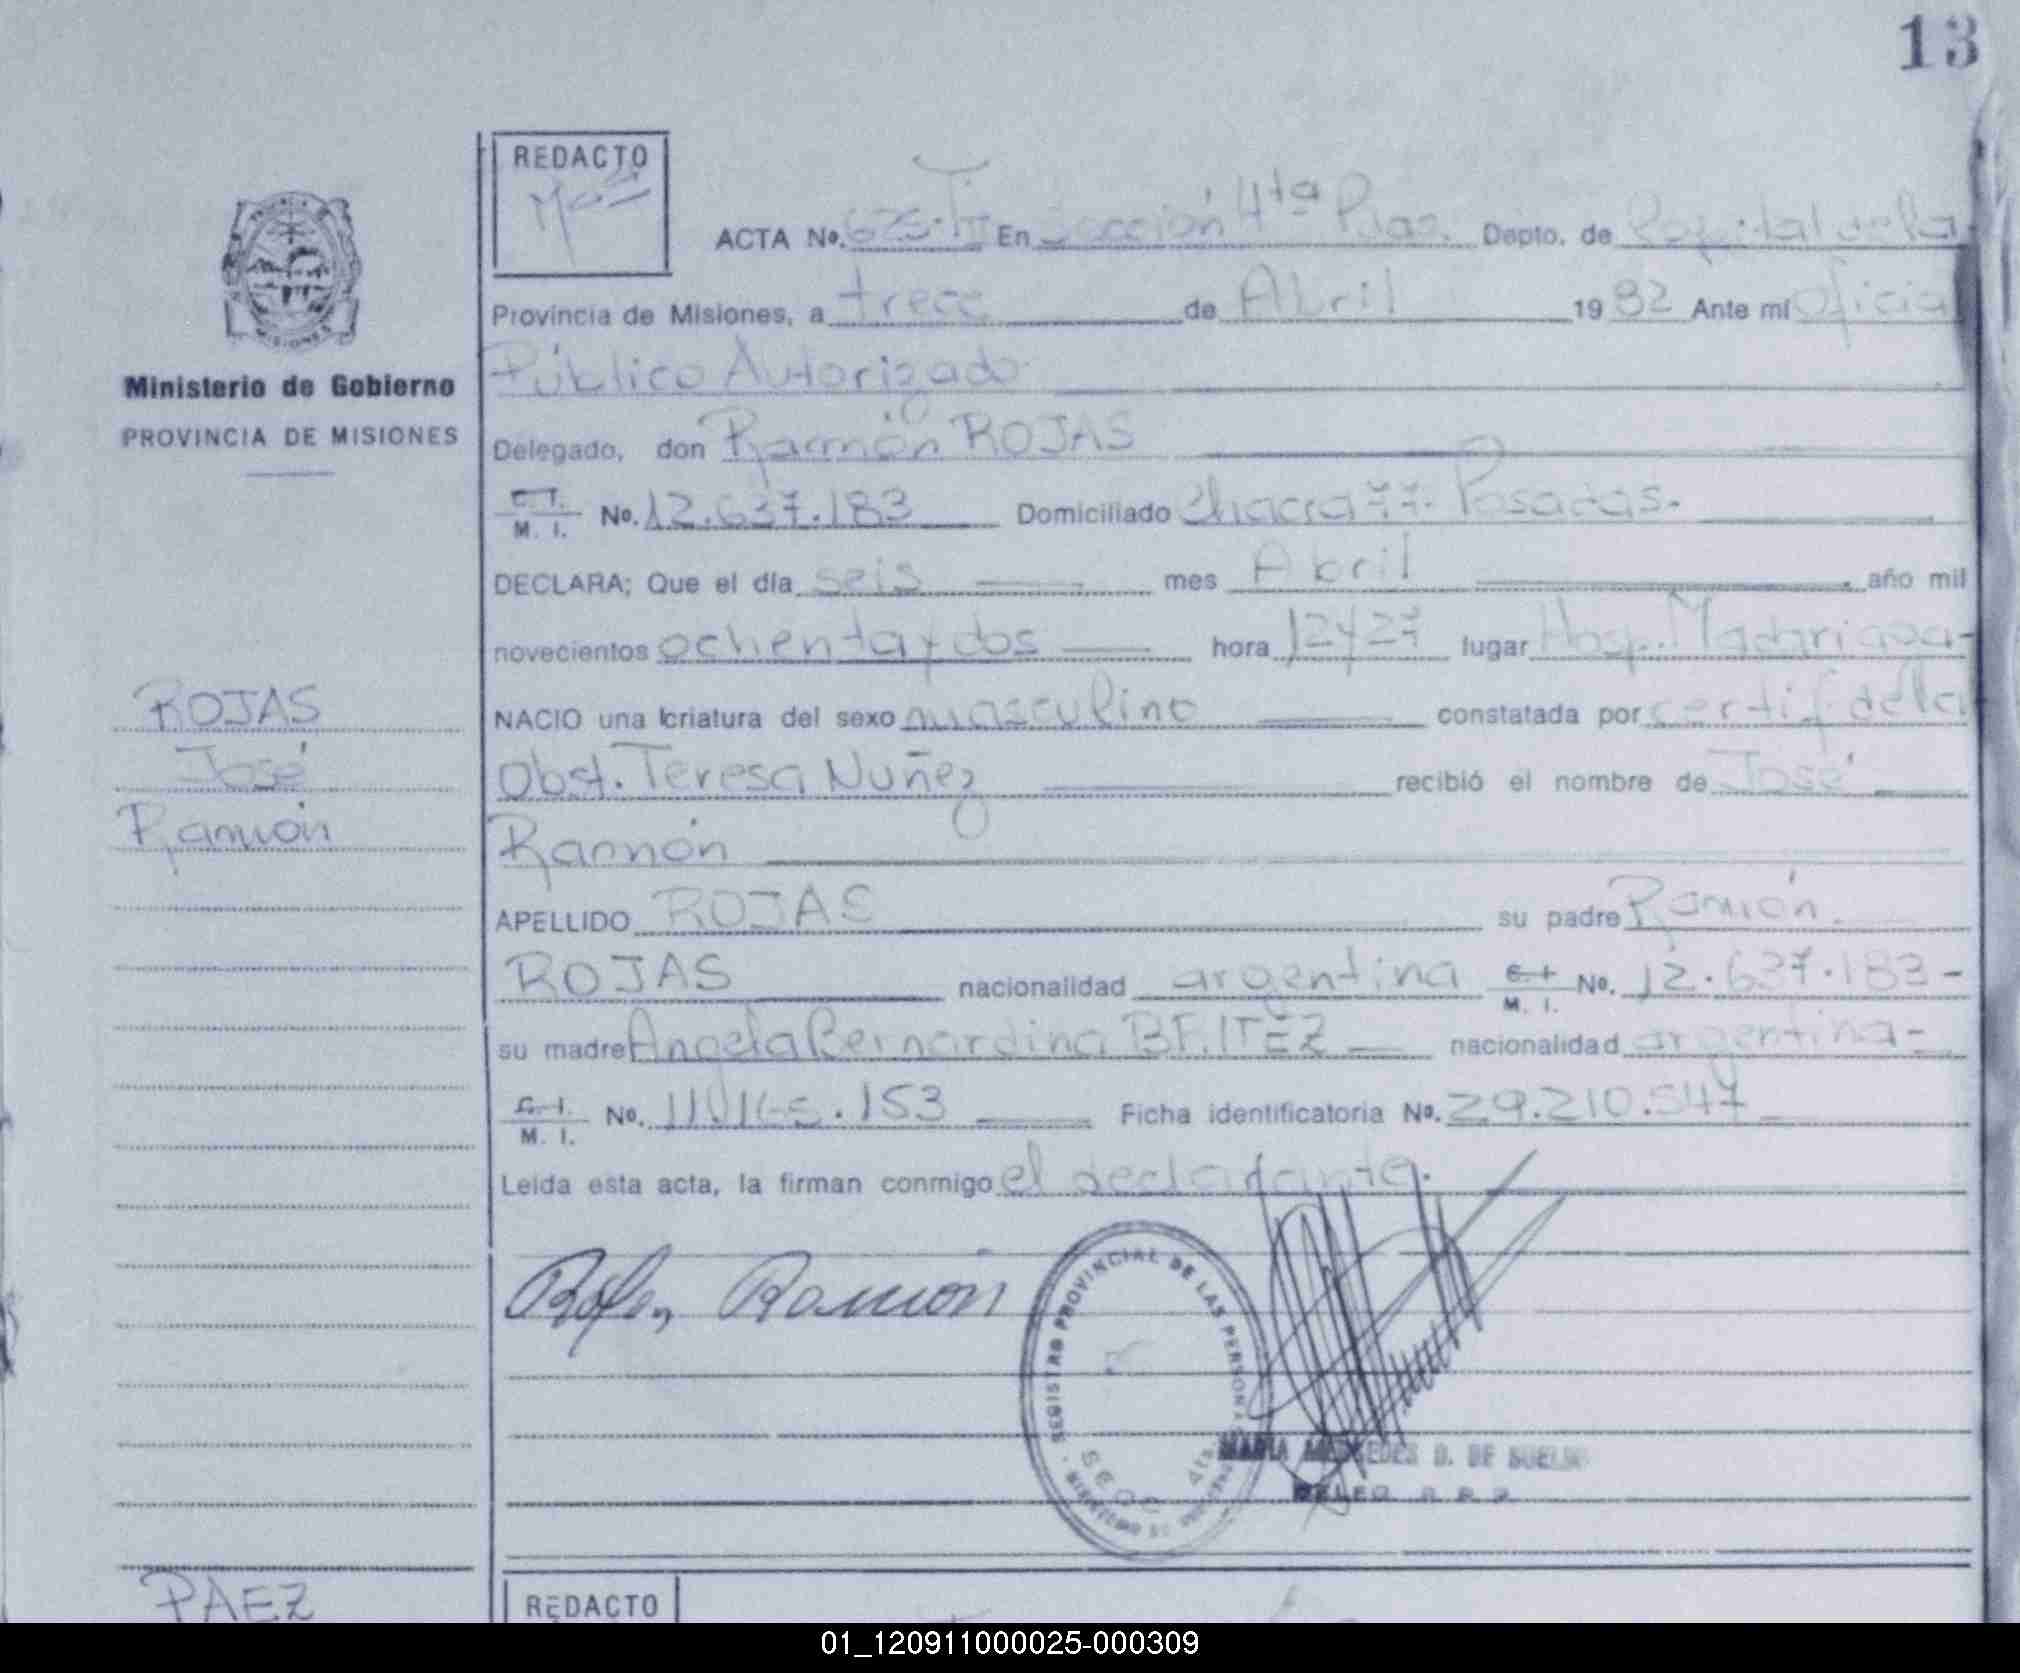 13
REDACTO
ACTA No. 625-TII En Sección 4ta Pdas. Depto. de Capital de la
Provincia de Misiones, a trece de Abril 1982 Ante mí Oficial
Público Autorizado
Ministerio de Gobierno
PROVINCIA DE MISIONES
Delegado, don Ramón ROJAS
C. I. M. I. No. 12.637.183 Domiciliado Chacra 77. Posadas.
DECLARA; Que el día seis mes Abril año mil
novecientos ochenta y dos hora 12 y 27 lugar Hosp. Madariaga-
ROJAS
José
Ramón
NACIO una criatura del sexo masculino constatada por certif de la
Obst. Teresa Nuñez recibió el nombre de José
Ramón
APELLIDO ROJAS su padre Ramón.
ROJAS nacionalidad argentina C. I. M. I. No. 12.637.183-
su madre Angela Bernardina BEITEZ nacionalidad argentina-
C. I. M. I. No. .153 Ficha identificatoria No. 29.210.547
Leída esta acta, la firman conmigo el declarante.
Rojas, Ramón
REGISTRO PROVINCIAL DE LAS PERSONAS
SECC 4ta
MARIA MERCEDES D. DE
DELEG. R. P. P.
PAEZ
REDACTO
01_120911000025-000309